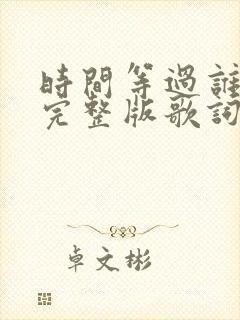 時間等過誰
完整版歌詞
卓文彬